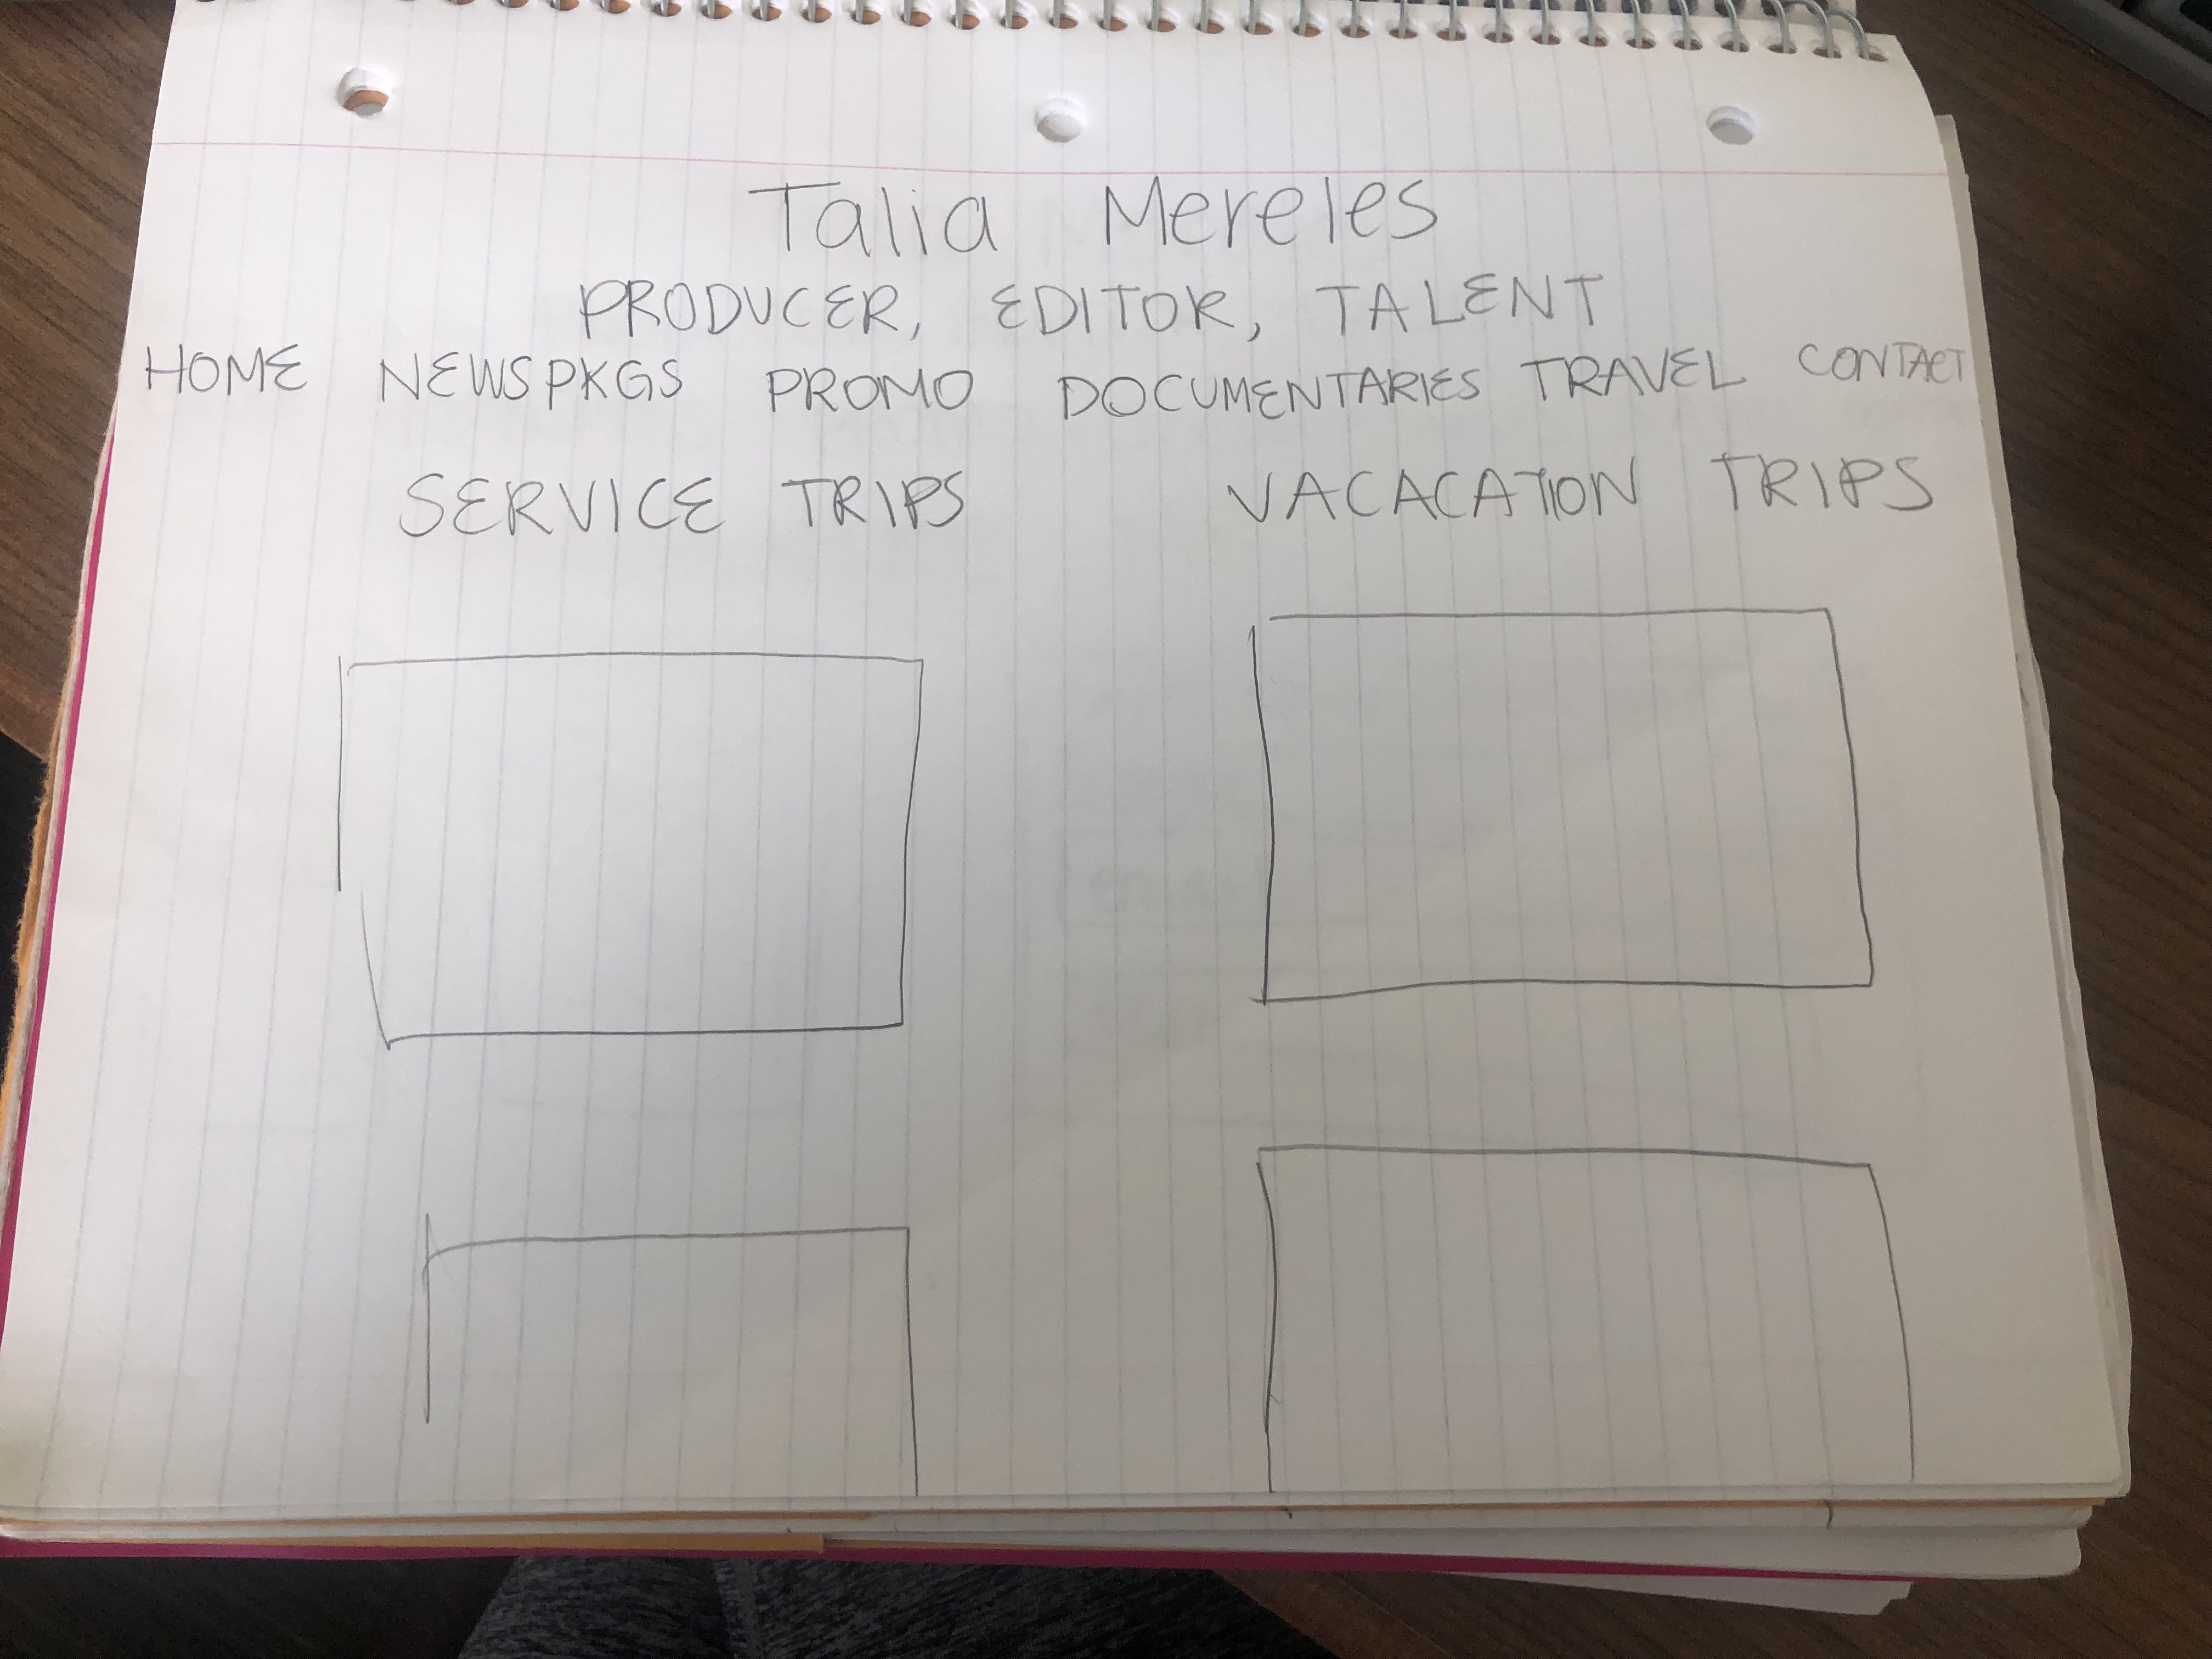 Talia Mereles
PRODUCER, EDITOR, TALENT
HOME NEWS PKGS PROMO DOCUMENTARIES TRAVEL CONTACT
SERVICE TRIPS VACACATION TRIPS